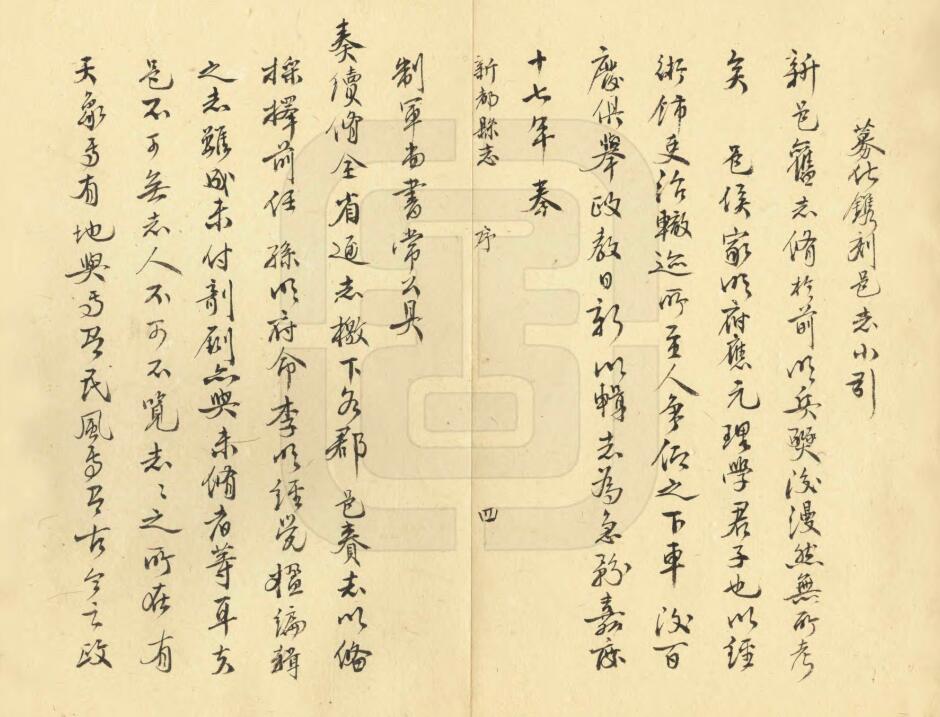 募化鐫刻邑志小引
新邑舊志脩於前明兵燹後漫然無所考
矣　邑侯家明府應元理學君子也以經
術飾吏治轍迹所至人爭仰之下車後百
廢俱舉政教日新以輯志為急務嘉慶
十七年奉
新都縣志　序　四
制軍尚書常公具
奏續脩全省通志檄下各郡邑賚志以備
採擇前任孫明府命李明經覺楹編輯
之志雖成未付剞劂亦與未脩者等耳夫
邑不可無志人不可不覽志〻之所在有
天象焉有地輿焉有民風焉有古今之政